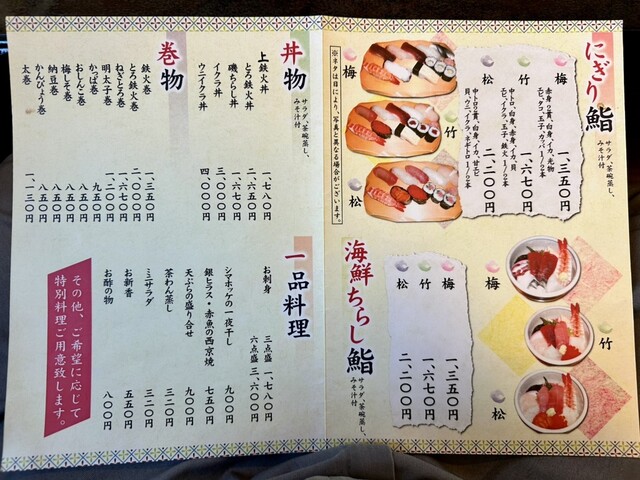 にぎり鮨
サラダ、茶碗蒸し、
みそ汁付
梅 一、三五〇円
赤身2貫、白身、イカ、光物
エビ、タコ、玉子、カッパ1/2本
竹 一、六七〇円
中トロ、白身、赤身、イカ、貝
エビ、イクラ、玉子、鉄火1/2本
松 二、二〇〇円
中トロ2貫、白身、イカ、甘エビ
貝、ウニ、イクラ、ネギトロ1/2本
梅
竹
松
※ネタは日により、写真と異なる場合がございます。
海鮮ちらし鮨
サラダ、茶碗蒸し、
みそ汁付
梅 一、三五〇円
竹 一、六七〇円
松 二、二〇〇円
梅
竹
松
丼物
サラダ、茶碗蒸し、
みそ汁付
上鉄火丼 一、七八〇円
とろ鉄火丼 二、六五〇円
磯ちらし丼 一、六七〇円
イクラ丼 三、〇〇〇円
ウニイクラ丼 四、〇〇〇円
巻物
鉄火巻 一、三五〇円
とろ鉄火巻 二、〇〇〇円
ねぎとろ巻 一、六七〇円
明太子巻 一、二〇〇円
かっぱ巻 九五〇円
おしんこ巻 八五〇円
梅しそ巻 八五〇円
納豆巻 八五〇円
かんぴょう巻 八五〇円
太巻 一、一三〇円
一品料理
お刺身 三点盛 一、七八〇円
六点盛 三、六〇〇円
シマホッケの一夜干し 九〇〇円
銀ヒラス・赤魚の西京焼 七五〇円
天ぷらの盛り合せ 九〇〇円
茶わん蒸し 三二〇円
ミニサラダ 三二〇円
お新香 五五〇円
お酢の物 八〇〇円
その他、ご希望に応じて
特別料理ご用意致します。